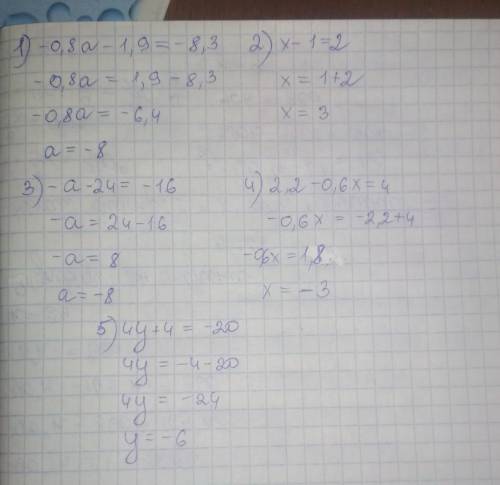 1) -0,8a - 1,9 = -8,3
-0,8a = 1,9 - 8,3
-0,8a = -6,4
a = -8
2) x - 1 = 2
x = 1+2
x = 3
3) -a - 24 = -16
-a = 24 - 16
-a = 8
a = -8
4) 2,2 - 0,6x = 4
-0,6x = -2,2+4
-0,6x = 1,8
x = -3
5) 4y + 4 = -20
4y = -4 - 20
4y = -24
y = -6